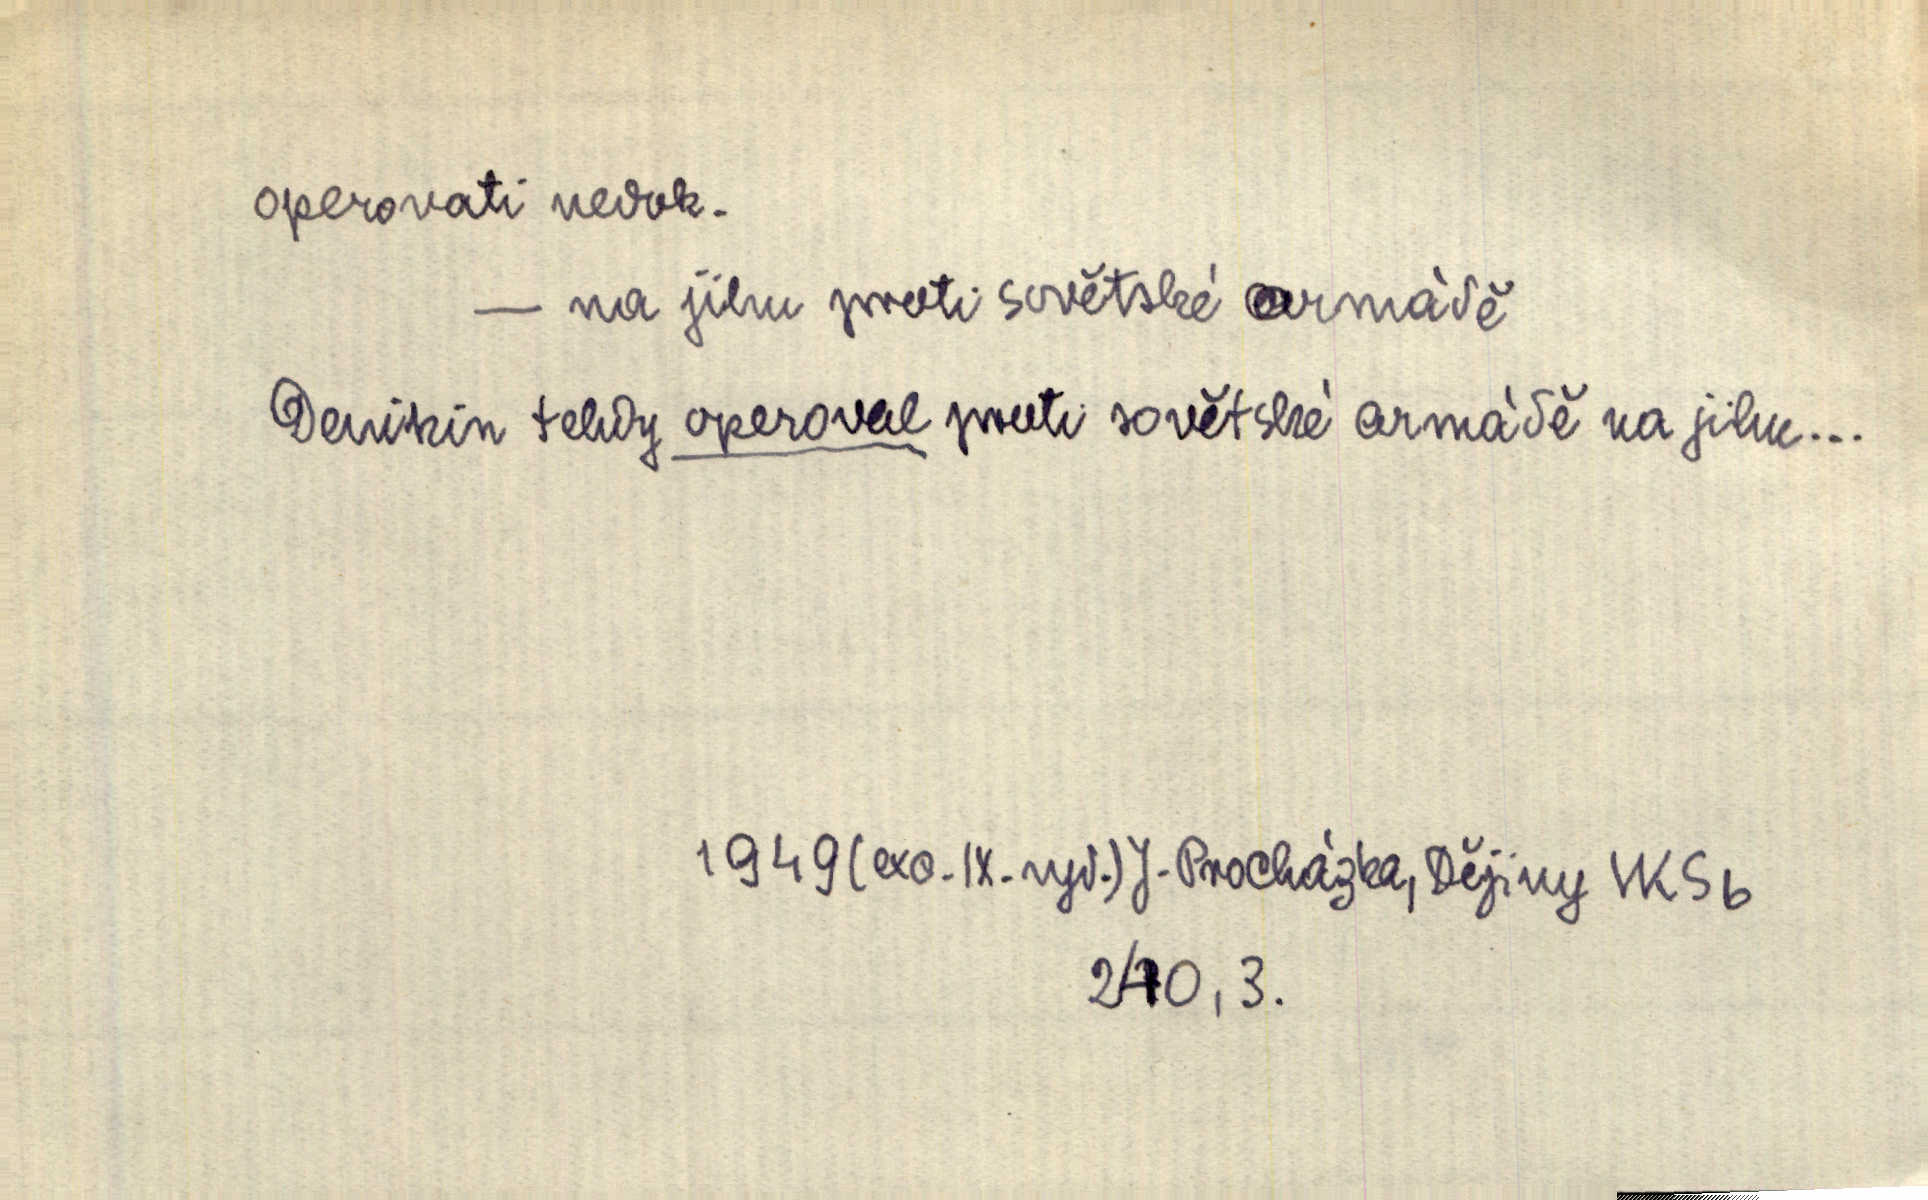 operovati nedok.
— na jihu proti sovětské armádě
Denikin tehdy operoval proti sovětské armádě na jihu...
1949 (exc. IX. vyd.) J. Procházka, Dějiny VKSb
240, 3.